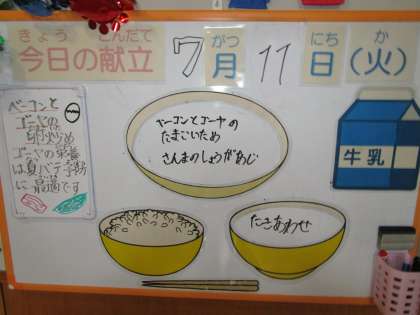 きょう こんだて
今日の献立
7 がつ 月 11 にち 日 か (火)
ベーコンと
ゴーヤの
卵炒め
ゴーヤの栄養
は夏バテ予防
に最適です
ベーコンとゴーヤの
たまごいため
さんまのしょうがあじ
牛乳
たきあわせ